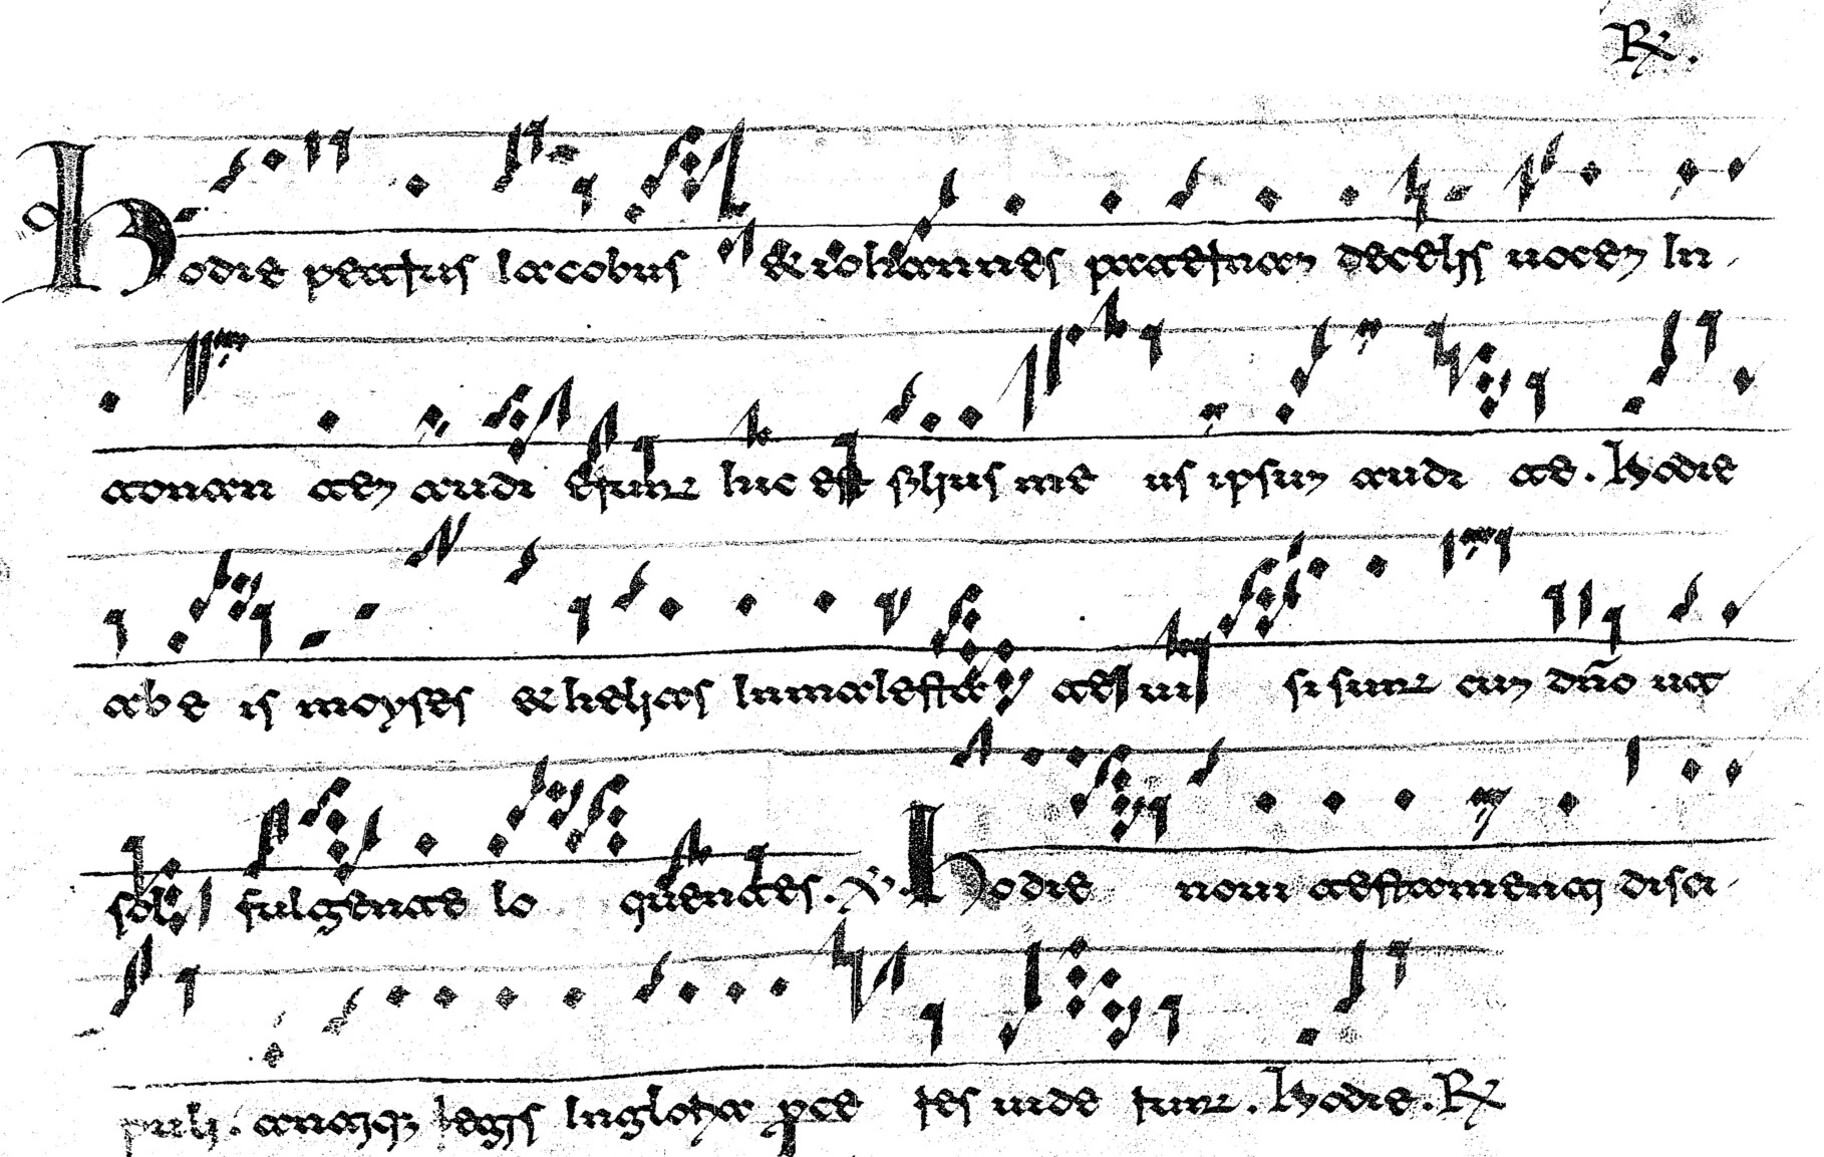 ℟.
Hodie petrus Iacobus & iohannes paternam decelis uocem In
tonan tem audi erunt hic est filius me us ipsum audi te. Hodie
ab e is moyses & helias Inmaiesta te ui si sunt cum dn̄o ut
sol fulgente lo quentes. ℣. Hodie noui testamenti disci
puli. antiq; legis Ingloria uide runt. Hodie. ℟